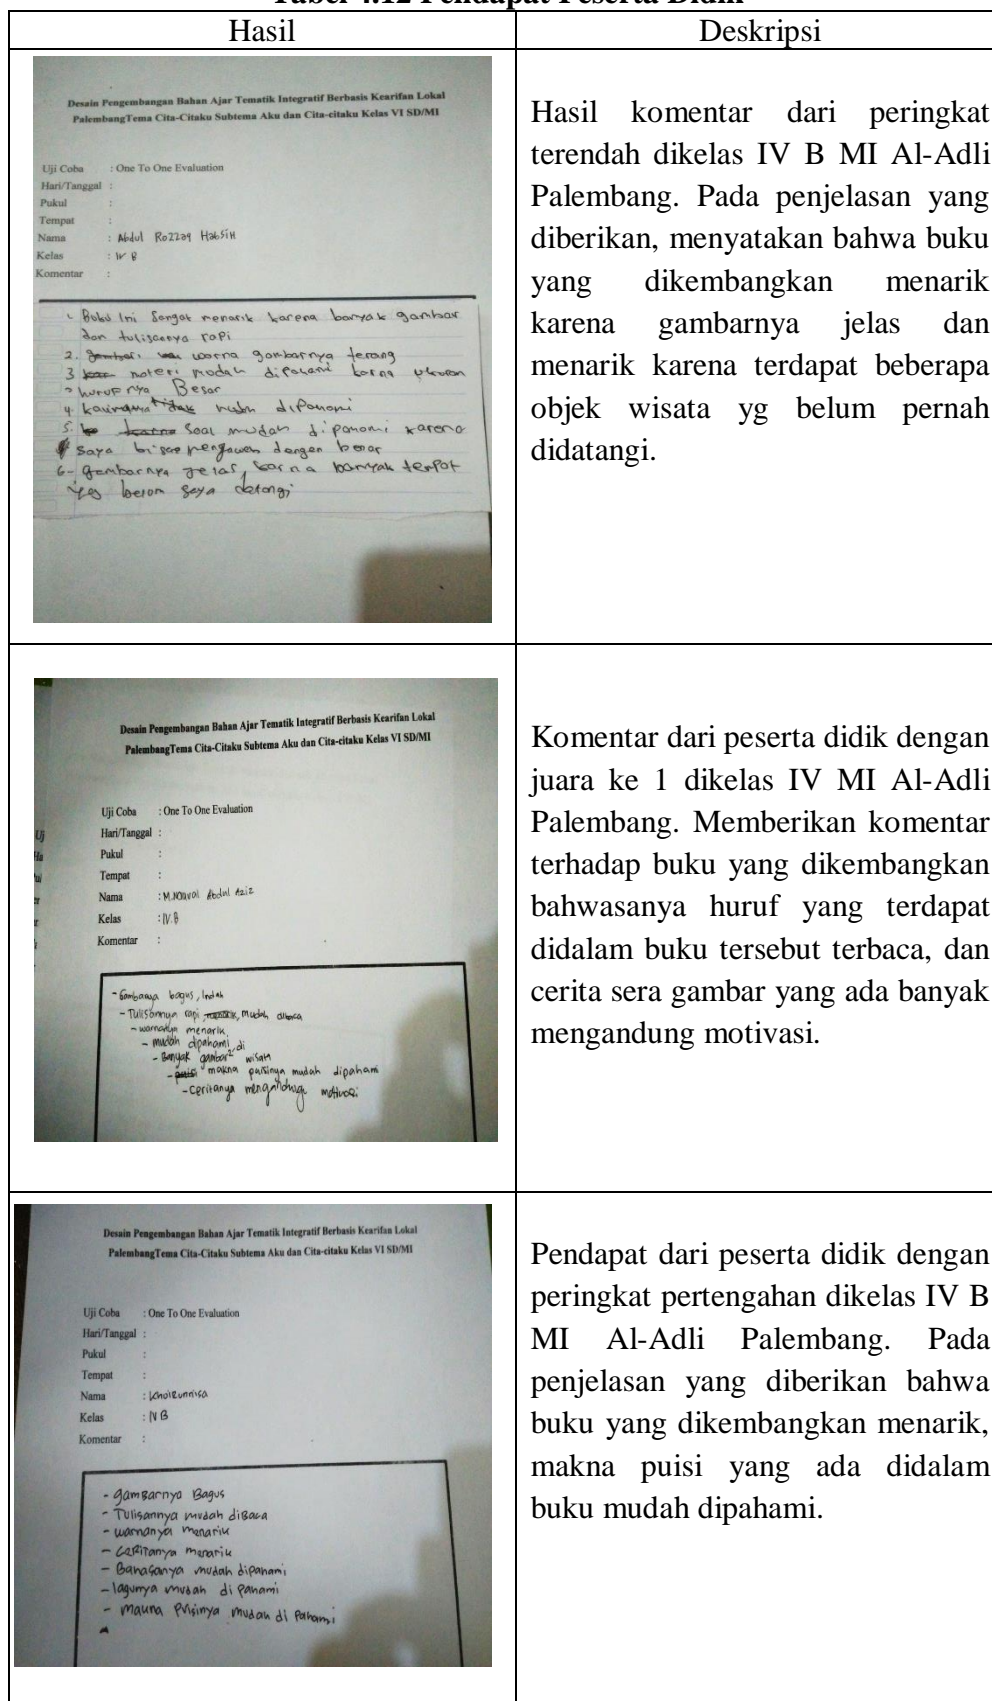 Tabel 4.12 Pendapat Peserta Didik
Hasil
Deskripsi
Desain Pengembangan Bahan Ajar Tematik Integratif Berbasis Kearifan Lokal
PalembangTema Cita-Citaku Subtema Aku dan Cita-citaku Kelas VI SD/MI
Uji Coba : One To One Evaluation
Hari/Tanggal :
Pukul :
Tempat :
Nama : Abdul Rozzaq Habsih
Kelas : IV B
Komentar :
1. Buku ini Sangat menarik karena banyak gambar
dan tulisannya rapi
2. warna gambarnya terang
3 materi mudah dipahami karna ukuran
hurufnya Besar
4 tidak dipahami
5. Soal mudah dipahami karena
saya dengan benar
6- gambarnya jelas, karna banyak tempat
yag belom saya datangi
Hasil komentar dari peringkat
terendah dikelas IV B MI Al-Adli
Palembang. Pada penjelasan yang
diberikan, menyatakan bahwa buku
yang dikembangkan menarik
karena gambarnya jelas dan
menarik karena terdapat beberapa
objek wisata yg belum pernah
didatangi.
Desain Pengembangan Bahan Ajar Tematik Integratif Berbasis Kearifan Lokal
PalembangTema Cita-Citaku Subtema Aku dan Cita-citaku Kelas VI SD/MI
Uji Coba : One To One Evaluation
Hari/Tanggal :
Pukul :
Tempat :
Nama : M.Nauval Abdul Aziz
Kelas : IV.B
Komentar :
- Gambarnya bagus, Indah
- Tulisannya rapi, mudah dibaca
- warnanya menarik
- mudah dipahami di
- Banyak gambar² wisata
- makna puisinya mudah dipahami
- Ceritanya mengandung motivasi
Komentar dari peserta didik dengan
juara ke 1 dikelas IV MI Al-Adli
Palembang. Memberikan komentar
terhadap buku yang dikembangkan
bahwasanya huruf yang terdapat
didalam buku tersebut terbaca, dan
cerita sera gambar yang ada banyak
mengandung motivasi.
Desain Pengembangan Bahan Ajar Tematik Integratif Berbasis Kearifan Lokal
PalembangTema Cita-Citaku Subtema Aku dan Cita-citaku Kelas VI SD/MI
Uji Coba : One To One Evaluation
Hari/Tanggal :
Pukul :
Tempat :
Nama : Khoirunnisa
Kelas : IV B
Komentar :
- gambarnya Bagus
- Tulisannya mudah diBaca
- warnanya menarik
- ceRitanya menarik
- Bahasanya mudah dipahami
- lagunya mudah di pahami
- makna puisinya mudah di pahami
Pendapat dari peserta didik dengan
peringkat pertengahan dikelas IV B
MI Al-Adli Palembang. Pada
penjelasan yang diberikan bahwa
buku yang dikembangkan menarik,
makna puisi yang ada didalam
buku mudah dipahami.